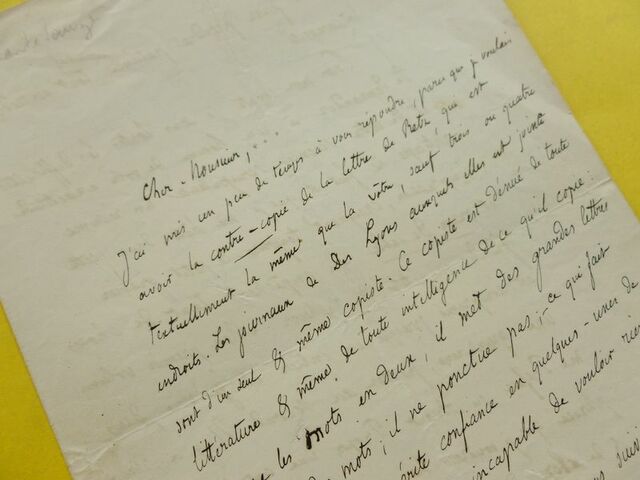 Cher Monsieur, . . .
J'ai mis un peu de temps à vous répondre, parce que je voulais
avoir la contre-copie de la lettre de Retz, qui est
textuellement la même que la vôtre, sauf trois ou quatre
endroits. Les journaux de Des Lyons auxquels elles est jointe
sont d'un seul & même copiste. Ce copiste est dénué de toute
littérature & même de toute intelligence de ce qu'il copie:
les mots en deux, il met des grandes lettres
mots; il ne ponctue pas; - ce qui fait
confiance en quelques-unes de
incapable de vouloir rien